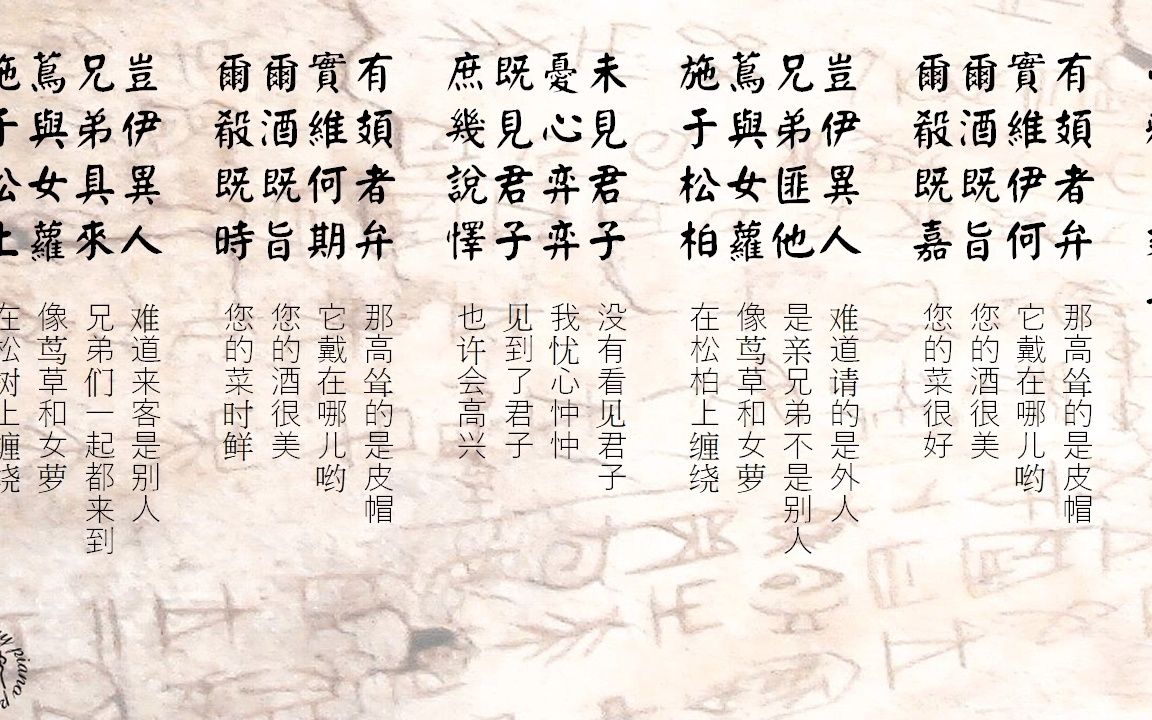 有頍者弁
實維伊何
爾酒既旨
爾殽既嘉
豈伊異人
兄弟匪他
蔦與女蘿
施于松柏
未見君子
憂心弈弈
既見君子
庶幾說懌
有頍者弁
實維何期
爾酒既旨
爾殽既時
豈伊異人
兄弟具來
蔦與女蘿
施于松上
那高耸的是皮帽
它戴在哪儿哟
您的酒很美
您的菜很好
难道请的是外人
是亲兄弟不是别人
像茑草和女萝
在松柏上缠绕
没有看见君子
我忧心忡忡
见到了君子
也许会高兴
那高耸的是皮帽
它戴在哪儿哟
您的酒很美
您的菜时鲜
难道来客是别人
兄弟们一起都来到
像茑草和女萝
在松树上缠绕
piano